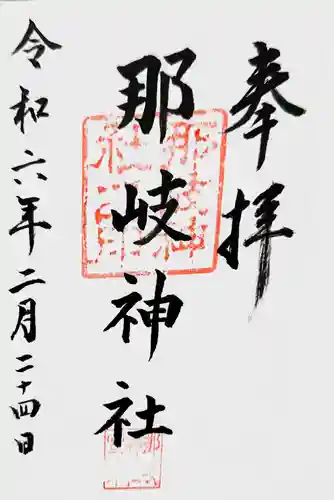 奉拝
那岐神社
令和六年二月二十四日
那岐神社之印